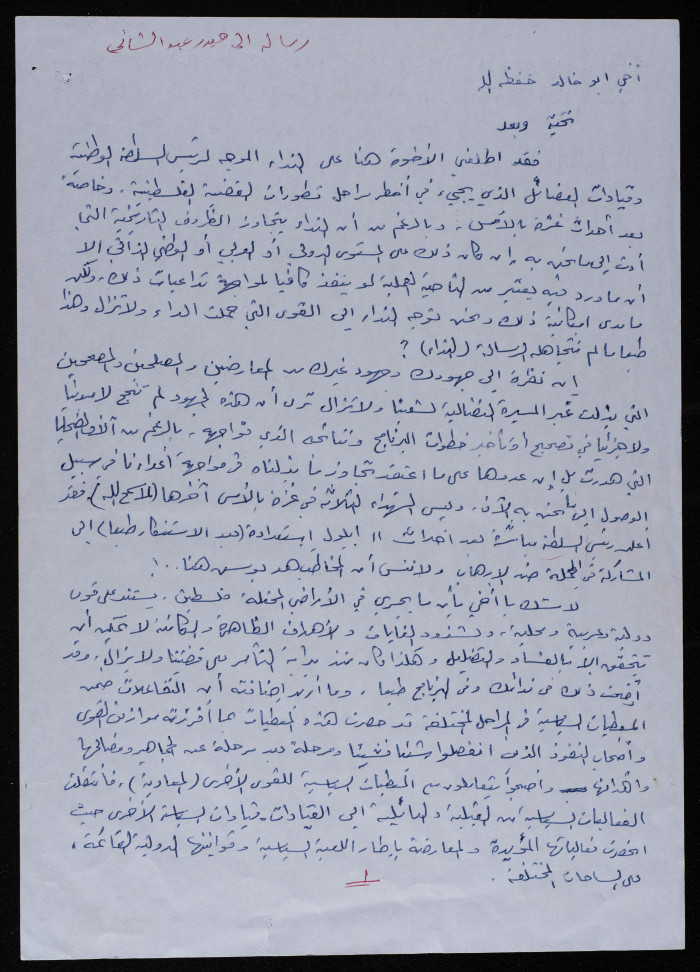 رسالة الى حيدر عبد الشافي
أخي ابو خالد حفظه الله
تحية وبعد
فقد اطلعني الأخوة هنا على النداء الموجه لرئيس السلطة الوطنية
وقيادات الفصائل الذي يجيء في أخطر مراحل تطورات القضية الفلسطينية، وخاصة
بعد أحداث غزة بالأمس، وبالرغم من أن النداء يتجاوز الظروف التاريخية التي
أدت إلى ما نحن به إن كان ذلك على المستوى الدولي أو العربي أو الوطني الذاتي إلا
أن ما ورد فيه يعتبر من الناحية العملية لو ينفذ كافيا لمواجهة تداعيات ذلك، ولكن
ما مدى امكانية ذلك ونحن نتوجه النداء إلى القوى التي حملت الداء ولا تزال وهذا
طبعا ما لم نتجاهله الرسالة (النداء) ؟
إن نظرة إلى جهودك وجهود غيرك من المعارضين والمصلحين والمصححين
التي بذلت عبر المسيرة النضالية لشعبنا ولا تزال ترى أن هذه الجهود لم تنجح لا
ولا جزئيا في تصحيح أو تأخير خطوات البرنامج ونتائجه الذي نواجهه، بالرغم من آلاف الضحايا
التي هدرت بل إن عددها على ما اعتقد تجاوز ما بذلناه في مواجهة أعداءنا في سبيل
الوصول إلى ما نحن به الآن، وليس الشهداء الثلاثة في غزة بالأمس آخرها، فقد
أعلن رئيس السلطة مباشرة بعد احداث ١١ ايلول استعداده (بعد الاستنكار طبعا) إلى
المشاركة في الحملة ضد الإرهاب ولا ننسى أن المخاطب هو بوش هنا..!
لا شك يا أخي بأن ما يجري في الأراضي المحتلة فلسطين، يستند على قوى
دولية وعربية ومحلية، ولتنفيذ الغايات والأهداف الظاهرة والكامنة لا يمكن أن
تتحقق إلا بالفساد والتضليل وهكذا كان منذ بداية التآمر على قضيتنا ولا يزال، وقد
أوضحت ذلك في ندائك وفي البرنامج طبعا، وما أريد إضافته أن التفاعلات ضمن
المعطيات السياسية في المراحل المختلفة قد حصرت هذه المعطيات بما أفرزته موازين القوى
وأصحاب النفوذ الذين انفصلوا شيئا فشيئا ومرحلة بعد مرحلة عن الجماهير ومصالحها
وأهدافها وأصبحوا يتعاملون مع المعطيات السياسية للقوى الأخرى (المعادية)، فانتقلت
الفعاليات السياسية من القبلية والعائلية إلى القيادات وقيادات السياسة الأخرى حيث
انحصرت فعالياتها المؤيدة والمعارضة بإطار اللعبة السياسية وقوانينها الدولية القائمة،
على الساحات المختلفة.
١